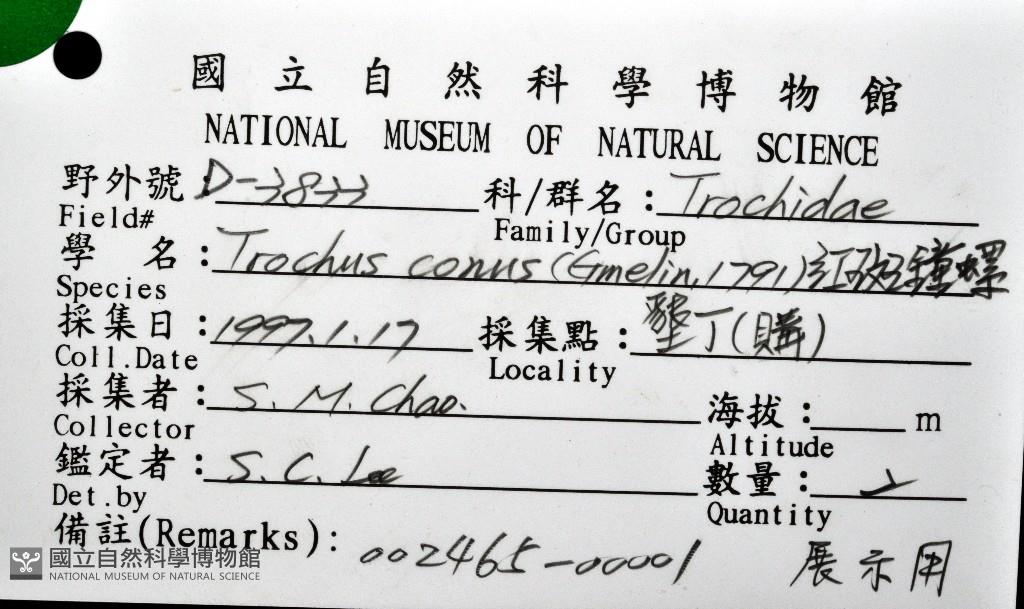 國立自然科學博物館
NATIONAL MUSEUM OF NATURAL SCIENCE
野外號：D-3833 科/群名：Trochidae
Field# Family/Group
學 名：Trochus conus (Gmelin, 1791) 紅斑鐘螺
Species
採集日：1997.1.17 採集點：墾丁(購)
Coll.Date Locality
採集者：S. M. Chao. 海拔： m
Collector Altitude
鑑定者：S. C. Lee 數量：
Det.by Quantity
備註(Remarks): 002465-00001 展示用
國立自然科學博物館
NATIONAL MUSEUM OF NATURAL SCIENCE